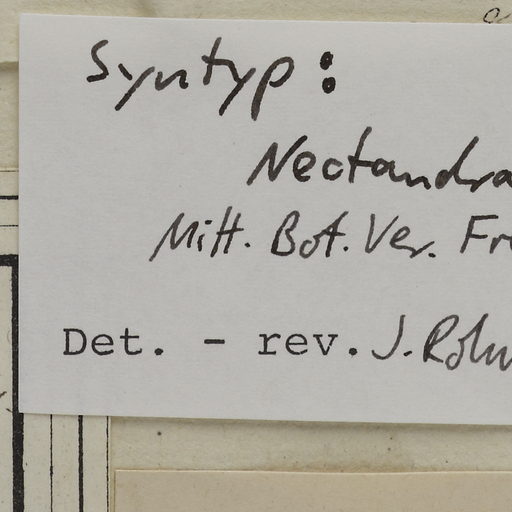 Syntyp:
Nectandra
Mitt. Bot. Ver.
Det. - rev. J.